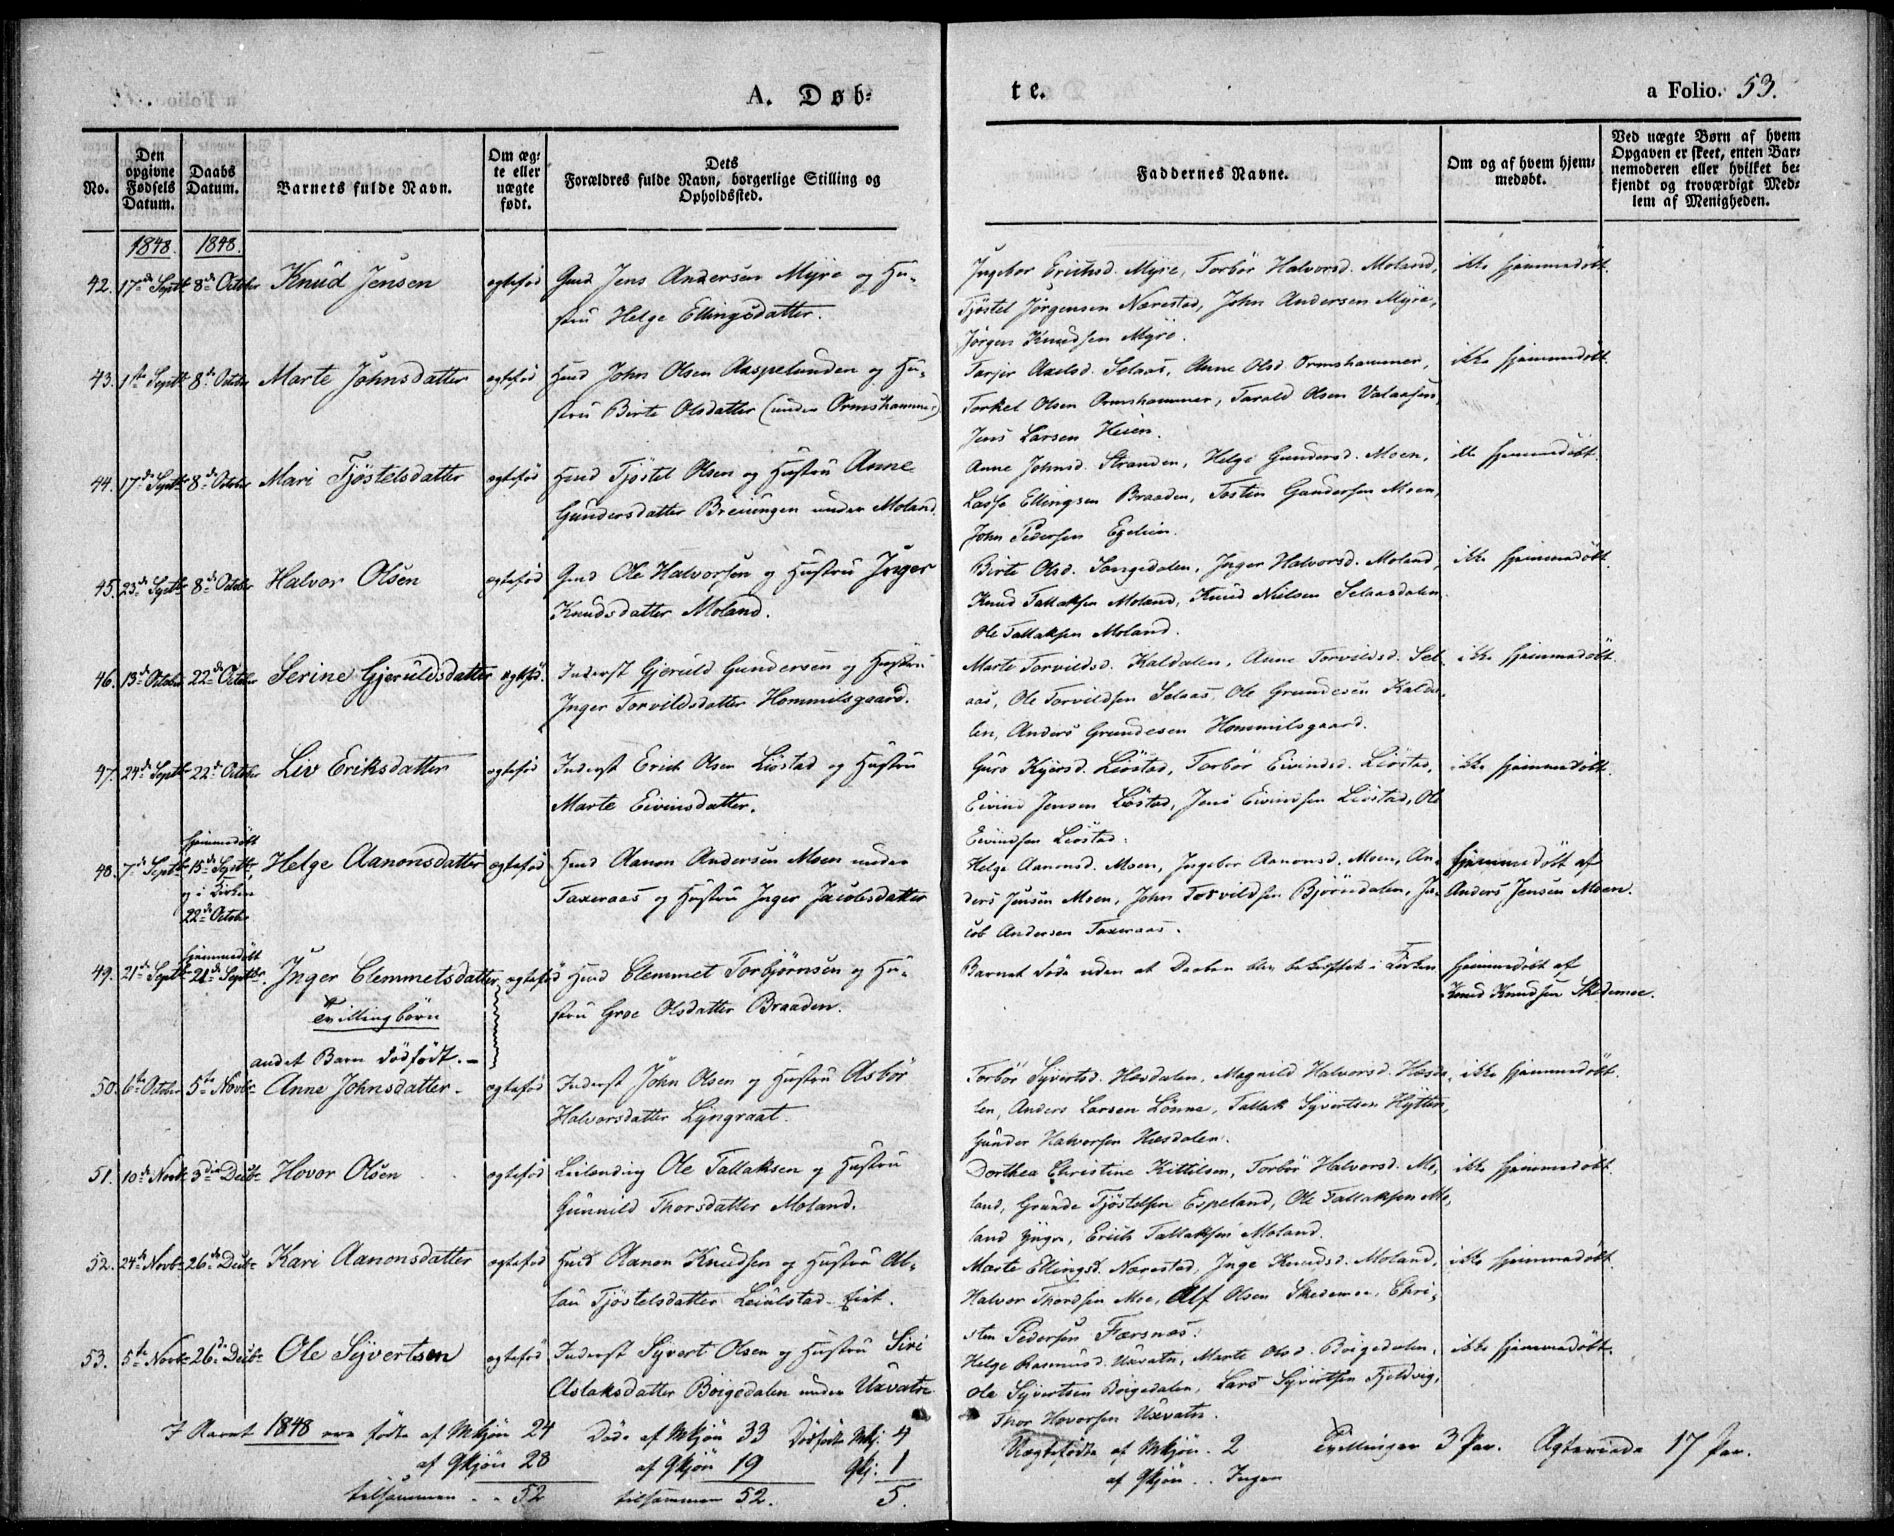 A. Døb=
te.
a Folio. 53.
No.
Den opgivne Fødsels Datum.
Daabs Datum.
Barnets fulde Navn.
Om æg= te eller uægte født.
Dets Forældres fulde Navn, borgerlige Stilling og Opholdssted.
Faddernes Navne.
Om og af hvem hjem= medøbt.
Ved uægte Børn af hvem Opgaven er skeet, enten Bar= nemoderen eller hvilket be= kjendt og troværdigt Med= lem af Menigheden.
1848. 1848.
42. 17de Septb 8de October Knud Jensen ægtefød Gmd Jens Andersen Myre og Hu=
stru Helge Ellingsdatter.
Ingebor Erichsd. Myre, Torbør Halvorsd. Moland,
Tjøstel Jørgensen Nærestad, John Andersen Myre,
Jørgen Knudsen Myre.
ikke hjemmedøbt.
43. 1ste Septb 8de October Marte Johnsdatter ægtefød Husmd John Olsen Aaspelunden og Hu=
stru Birte Olsdatter (under Ormshammer)
Tarjer Axelsd. Selaas, Anne Olsd Ormshammer,
Torkel Olsen Ormshammer, Tarald Olsen Valaasen,
Jens Larsen Heien.
ikke hjemmedøbt.
44. 17de Septb 8de October Mari Tjöstelsdatter ægtefød Husmd Tjøstel Olsen og Hustru Anne
Gundersdatter Breiungen under Moland.
Anne Johnsd. Stranden, Helge Gundersd. Moen,
Lasse Ellingsen Braaden, Tosten Gundersen Moen,
John Pedersen Egelien.
ikke hjemmedøbt.
45. 23de Septb 8de October Halvor Olsen ægtefød Gmd Ole Halvorsen og Hustru Inger
Knudsdatter Moland.
Birte Olsd. Songedalen, Inger Halvorsd. Moland,
Knud Tallaksen Moland, Knud Nielsen Selaasdalen
Ole Tallaksen Moland.
ikke hjemmedøbt.
46. 13de October 22de October Serine Gjeruldsdatter ægtefød. Inderst Gjeruld Gundersen og Hustru
Inger Torvildsdatter Hommilsgaard.
Marte Torvildsd. Kaldalen, Anne Torvildsd. Sel=
aas, Ole Torvildsen Selaas, Ole Grundesen Kalda=
len, Anders Grundesen Hommilsgaard.
ikke hjemmedøbt.
47. 24de Septb 22de October Liv Eriksdatter ægtefød Inderst Erich Olsen Liøstad og Hustru
Marte Eivinsdatter.
Guro Kjersd. Liøstad, Torbør Eivindsd. Liøstad,
Eivind Jensen Liøstad, Jens Eivindsen Liøstad, Ole
Eivindsen Liøstad.
ikke hjemmedøbt.
48. 7de Septb hjemmedøbt 15de Septbr, og i Kirken 22de Octobr Helge Aanonsdatter ægtefød Husmd Aanon Andersen Moen under
Taxeraas og Hustru Inger Jacobsdatter
Helge Aanonsd. Moen, Ingebor Aanonsd. Moen, An=
ders Jensen Moen, John Torvildsen Bjørndalen, Ja=
cob Andersen Taxeraas.
hjemmedöbt af
Anders Jensen Moen.
49. 21de Septb hjemmedöbt 21de Septbr. Inger Clemmetsdatter, ægtefød Husmd Clemmet Torbjørnsen og Hu=
stru Groe Olsdatter Braaden.
Tvillingbørn
andet Barn dødfødt. -
Barnet døde uden at Daaben blev bekræftet i Kirken
hjemmedøbt af
Knud Knudsen Skedsmoe.
50. 6te October 5te Novbr Anne Johnsdatter. ægtefød Inderst John Olsen og Hustru Asbør
Halvorsdatter Lyngraat.
Torbør Syvertsd. Hæsdalen, Magnild Halvorsd. Hæsda=
len, Anders Larsen Lønne, Tallak Syvertsen Hytten,
Gunder Halvorsen Hæsdalen.
ikke hjemmedøbt.
51. 10de Novb 3die Decbr Hovor Olsen ægtefød Leilending Ole Tallaksen og Hustru
Gunnild Thorsdatter Moland.
Dorthea Christine Kittilsen, Torbør Halvorsd. Mo=
land, Grunde Tjøstelsen Espeland, Ole Tallaksen Mo=
land yngre, Erich Tallaksen Moland.
ikke hjemmedøbt.
52. 24de Novb 26de Decbr Kari Aanonsdatter ægtefød Husmd Aanon Knudsen og Hustru As=
lau Tjöstelsdatter Leiulstad-Eiet.
Marte Ellingsd. Nærestad, Inge Knudsd. Moland,
Halvor Thordsen Moe, Alf Olsen Skedsmoe, Chri=
sten Pedersen Færsnæs.
ikke hjemmedøbt.
53. 5te Novb 26de Decbr Ole Syvertsen ægtefød Inderst Syvert Olsen og Hustru Siri
Aslaksdatter Böigedalen under Uxvatn
Helge Rasmusd. Uxvatn, Marte Olsd. Böigedalen,
Ole Syvertsen Böigedalen, Lars Syvertsen Fjeldvig,
Thor Hovorsen Uxvatn.
ikke hjemmedøbt.
I Aaret 1848 ere fødte af Mkjøn 24 Døde af Mkjøn 33 Dødfødte Mkj. 4
af Qkjön 28 af Qkjön 19 Qkj. 1
tilsammen - - 52 tilsammen 52. 5.
Uægtefødte af Mkjön. 2 Tvillinger 3 Par. Ægteviede 17 Par.
af Qkjön . . Ingen